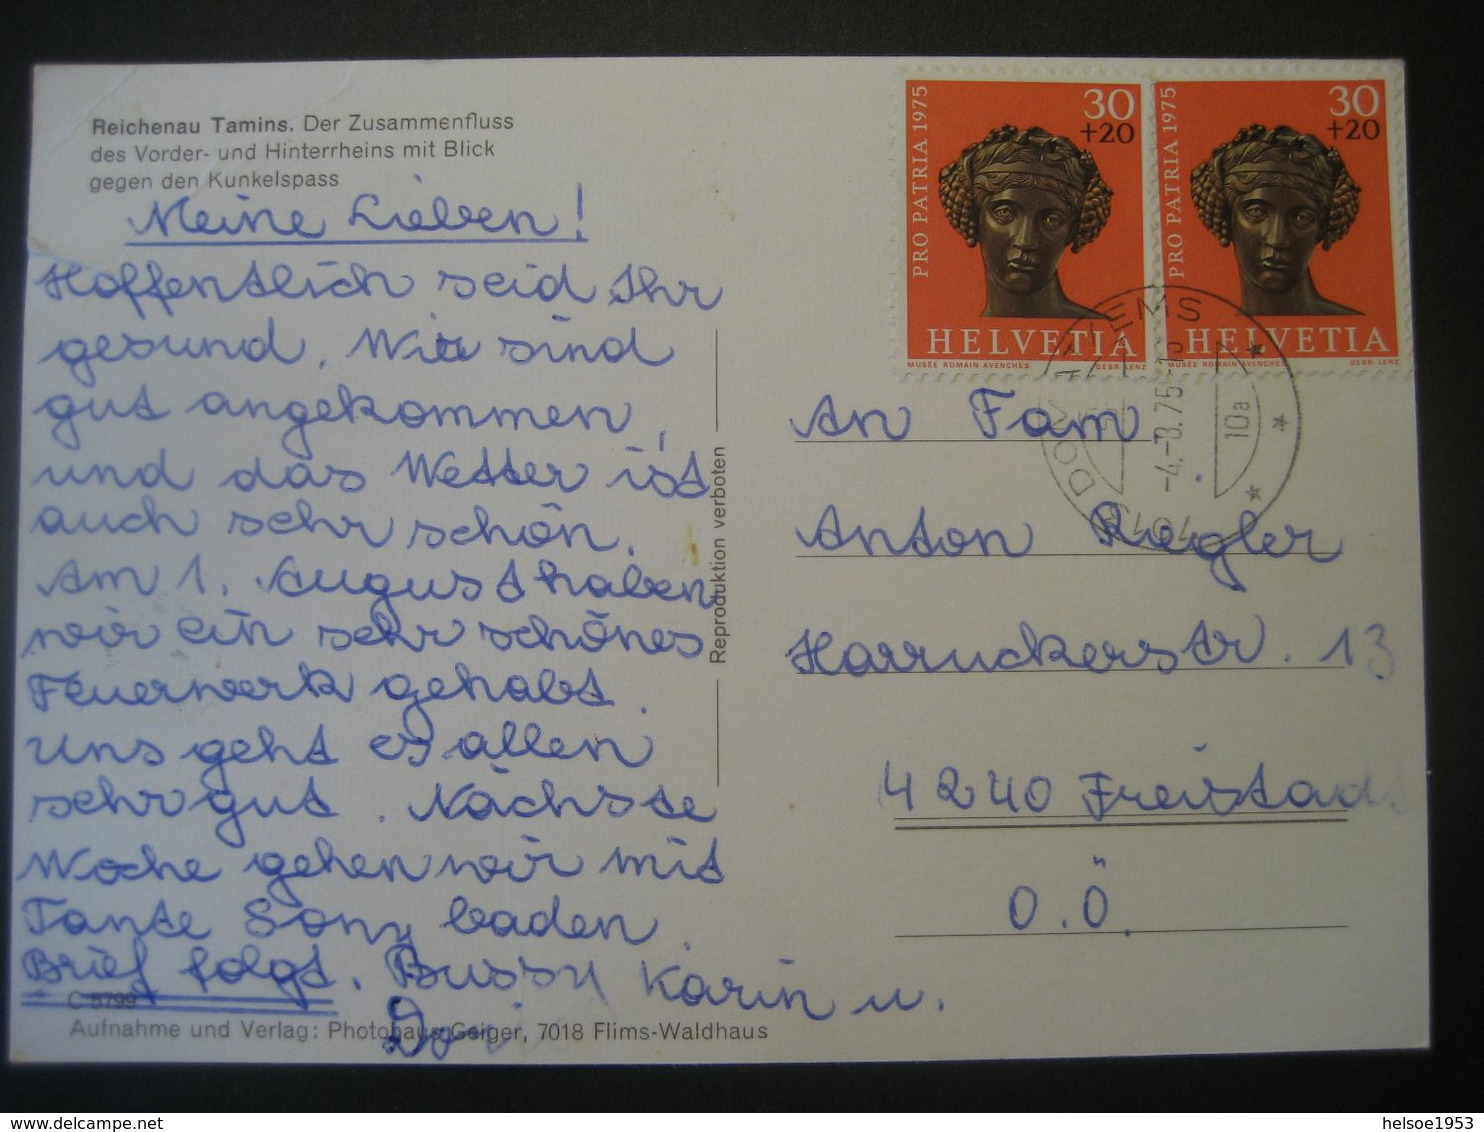 Reichenau Tamins. Der Zusammenfluss
des Vorder- und Hinterrheins mit Blick
gegen den Kunkelspass
Meine Lieben!
Hoffentlich seid Ihr
gesund. Wir sind
gut angekommen,
und das Wetter ist
auch sehr schön.
Am 1. August haben
wir ein sehr schönes
Feuerwerk gehabt.
Uns geht es allen
sehr gut. Nächste
Woche gehen wir mit
Tante Sony baden.
Brief folgt. Bussy Karin u.
C 5799
Aufnahme und Verlag: Photohaus Geiger, 7018 Flims-Waldhaus
Reproduktion verboten
PRO PATRIA 1975
30
+20
HELVETIA
MUSÉE ROMAIN AVENCHES
GEBR. LENZ
PRO PATRIA 1975
30
+20
HELVETIA
MUSÉE ROMAIN AVENCHES
GEBR. LENZ
7013 DOMAT/EMS
-4.-8.75-13
10a
An Fam.
Anton Riegler
Harruckerstr. 13
4240 Freistadt
O.Ö.
helsoe1953